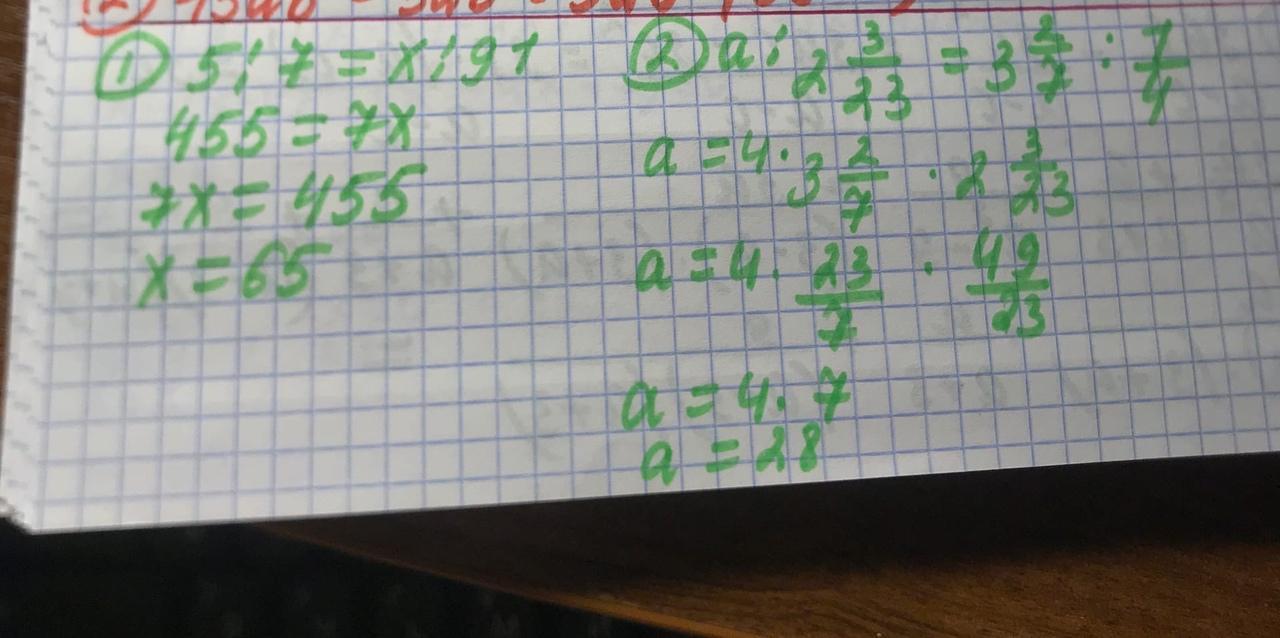 ① 5 : 7 = x : 91
455 = 7x
7x = 455
x = 65
② a : 2 3/23 = 3 2/7 : 1/4
a = 4 · 3 2/7 · 2 3/23
a = 4 · 23/7 · 49/23
a = 4 · 7
a = 28